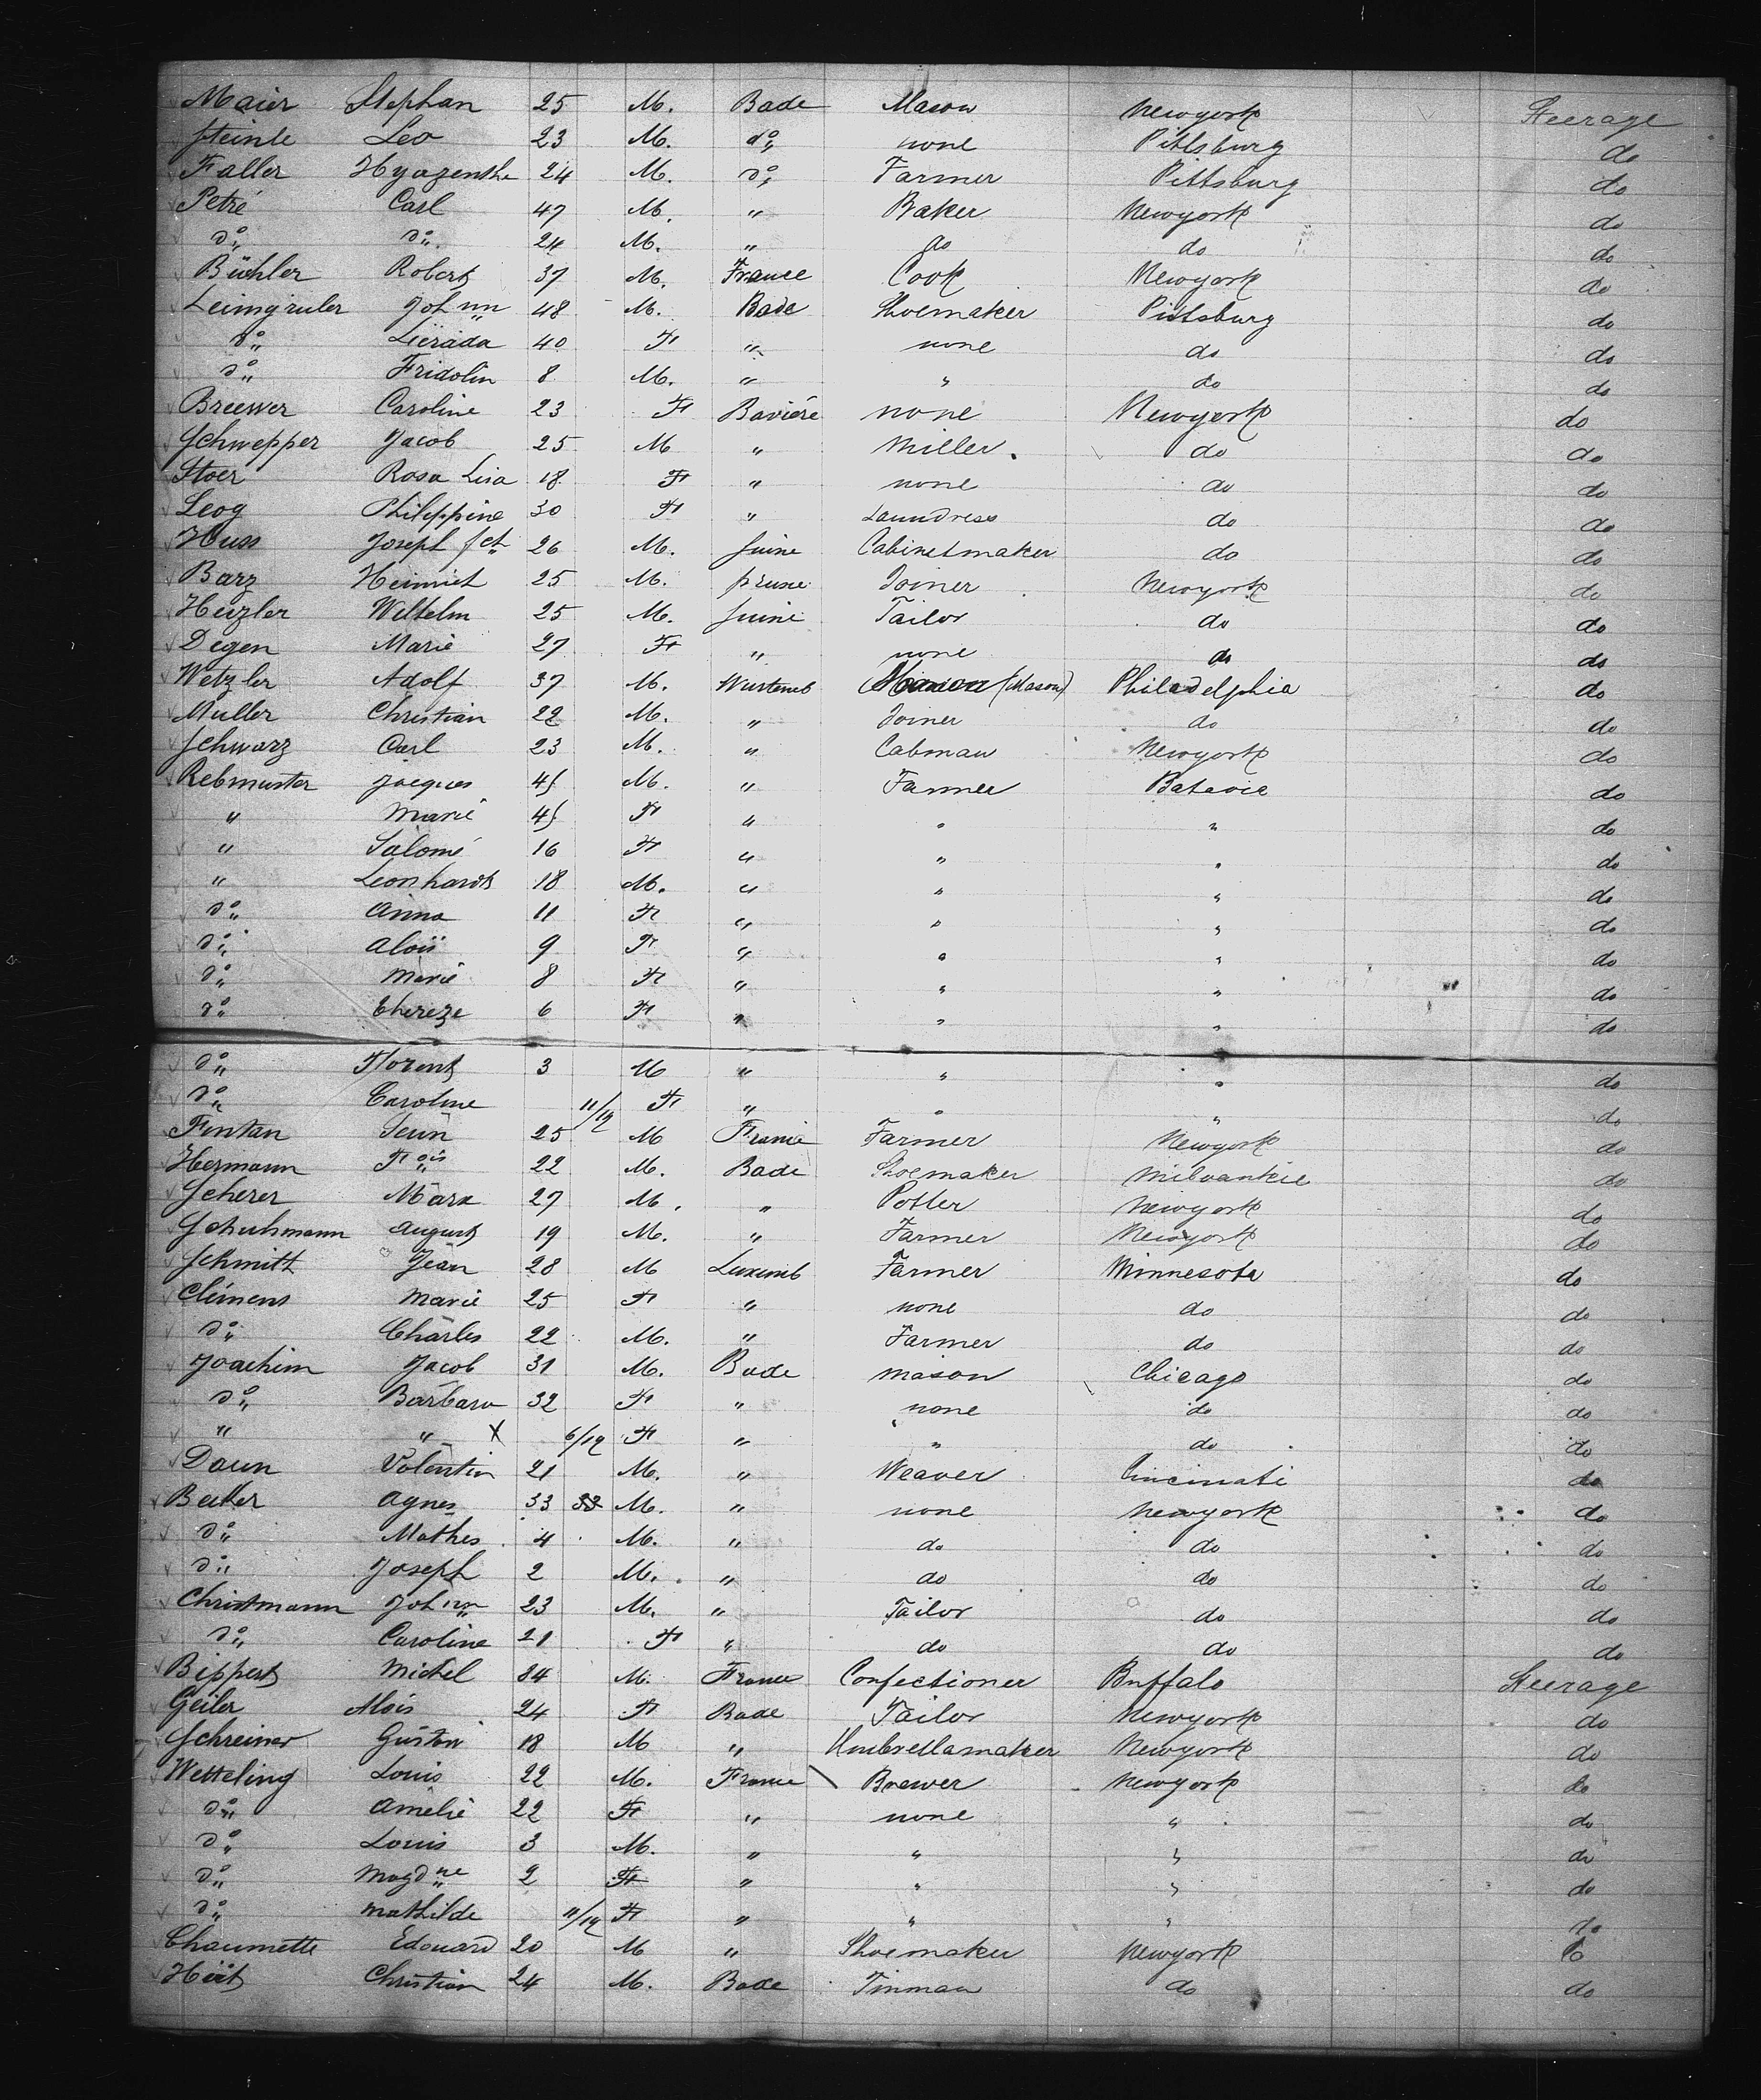 Maier Stephan 25 M. Bade Mason Newyork Steerage
Steinle Leo 23 M. do none Pittsburg do
Faller Hyazenthe 24 M. do Farmer Pittsburg do
Petré Carl 47 M. " Baker Newyork do
do do 24 M. " do do do
Bühler Robert 37 M. France Cook Newyork do
Leimgruler Johnn 48 M. Bade Shoemaker Pittsburg do
do 40 F " none do do
do Fridolin 8 M. " " do do
Breewer Caroline 23 F Baviére none Newyork do
Schwepper Jacob 25 M " Miller. do do
Stoer Rosa Lisa 18 F " none do do
Leog Philippine 30 F " Laundress do do
Huss Joseph 26 M. Suine Cabinetmaker do do
Barz Heinrich 25 M. prusse Joiner Newyork do
Heizler Wilhelm 25 M. Suine Tailor do do
Degen Marie 27 F " none do do
Wetzler Adolf 37 M. Wurtemb (Mason) Philadelphia do
Muller Christian 22 M. " Joiner do do
Schwarz Carl 23 M. " Cabman Newyork do
Rebmuster Jacques 45 M. " Farmer Batavia do
" Marie 45 F " " " do
" Salomé 16 F " " " do
" Leonhardt 18 M. " " " do
do Anna 11 F " " " do
do Alois 9 F " " " do
do Marie 8 F " " " do
do Thereze 6 F " " " do
do Florent 3 M " " " do
do Caroline 11/12 F " " " do
Fintan 25 M France Farmer Newyork do
Hermann Fois 22 M. Bade Shoemaker Milvankie do
Scherer Marx 27 M. " Potter Newyork do
Schuhmann August 19 M. " Farmer Newyork do
Schmitt Jean 28 M Luxemb Farmer Minnesota do
Clémens Marie 25 F " none do do
do Charles 22 M. " Farmer do do
Joachim Jacob 31 M. Bade mason Chicago do
do Barbara 32 F " none do do
" " X 6/12 F " " do do
Daun Valentin 21 M. " Weaver Cincinati do
Beiter Agnes 33 33 M. " none Newyork do
do Mathes 4 M. " do do do
do Joseph 2 M. " do do do
Christmann Johnn 23 M. " Tailor do do
do Caroline 21 F " do do do
Bippert Michel 34 M. France Confectioner Buffalo Steerage
Geiler Alois 24 F Bade Tailor Newyork do
Schreiner Gustav 18 M " Umbrellamaker Newyork do
Wetteling Louis 22 M. France Brewer Newyork do
do Amélie 22 F " none " do
do Louis 3 M. " " " do
do Magdne 2 F " " " do
do Mathilde 11/12 F " " " do
Chaumette Edouard 20 M " Shoemaker Newyork do
Christian 24 M. Bade Tinman do do